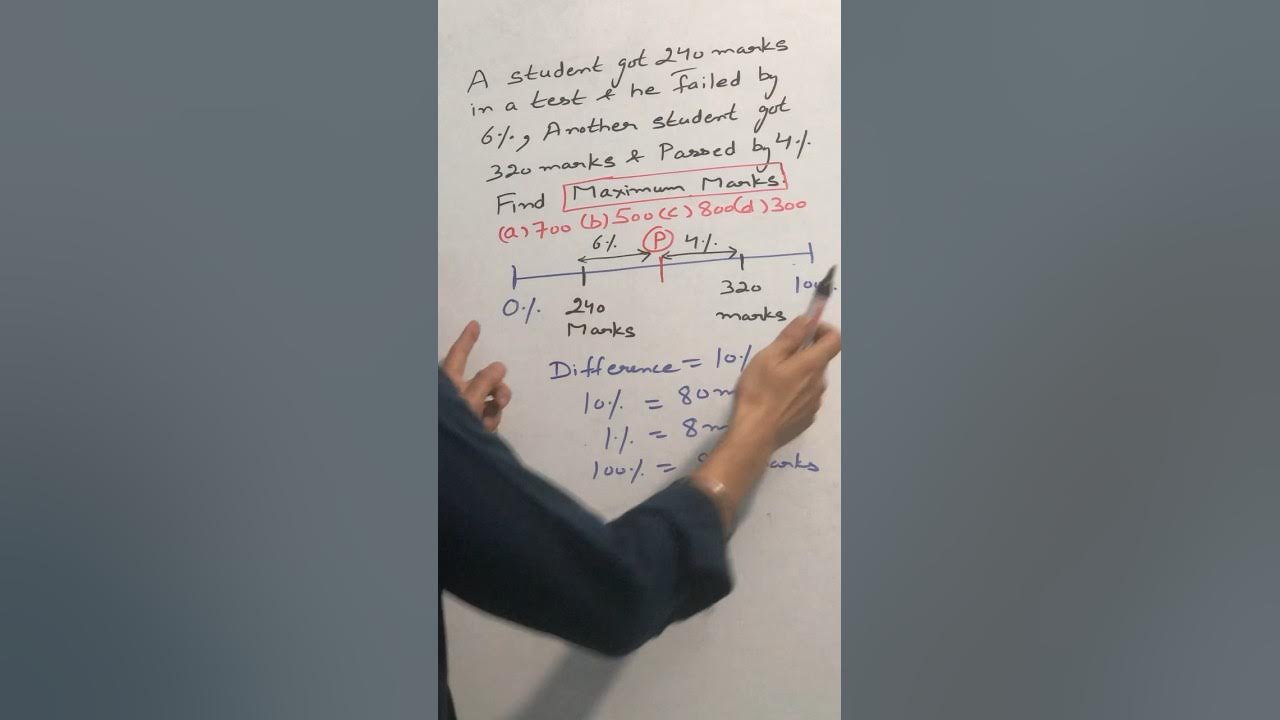 A student got 240 marks
in a test & he Failed by
6%, Another student got
320 marks & Passed by 4%
Find Maximum Marks.
(a) 700 (b) 500 (c) 800 (d) 300
6% P 4%
0% 240 320
Marks marks
Difference = 10%
10% = 80
1% = 8
100% =